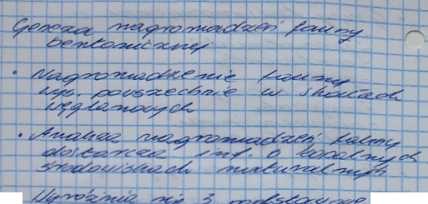 Geneza nagromadzeń fauny
bentonicznej
• Nagromadzenie fauny
wys. powszechnie w skałach
węglanowych
• Analiza nagromadzeń fauny
dostarcza inf. o lokalnych
środowiskach naturalnych
Wyróżnia się 3 podstawowe